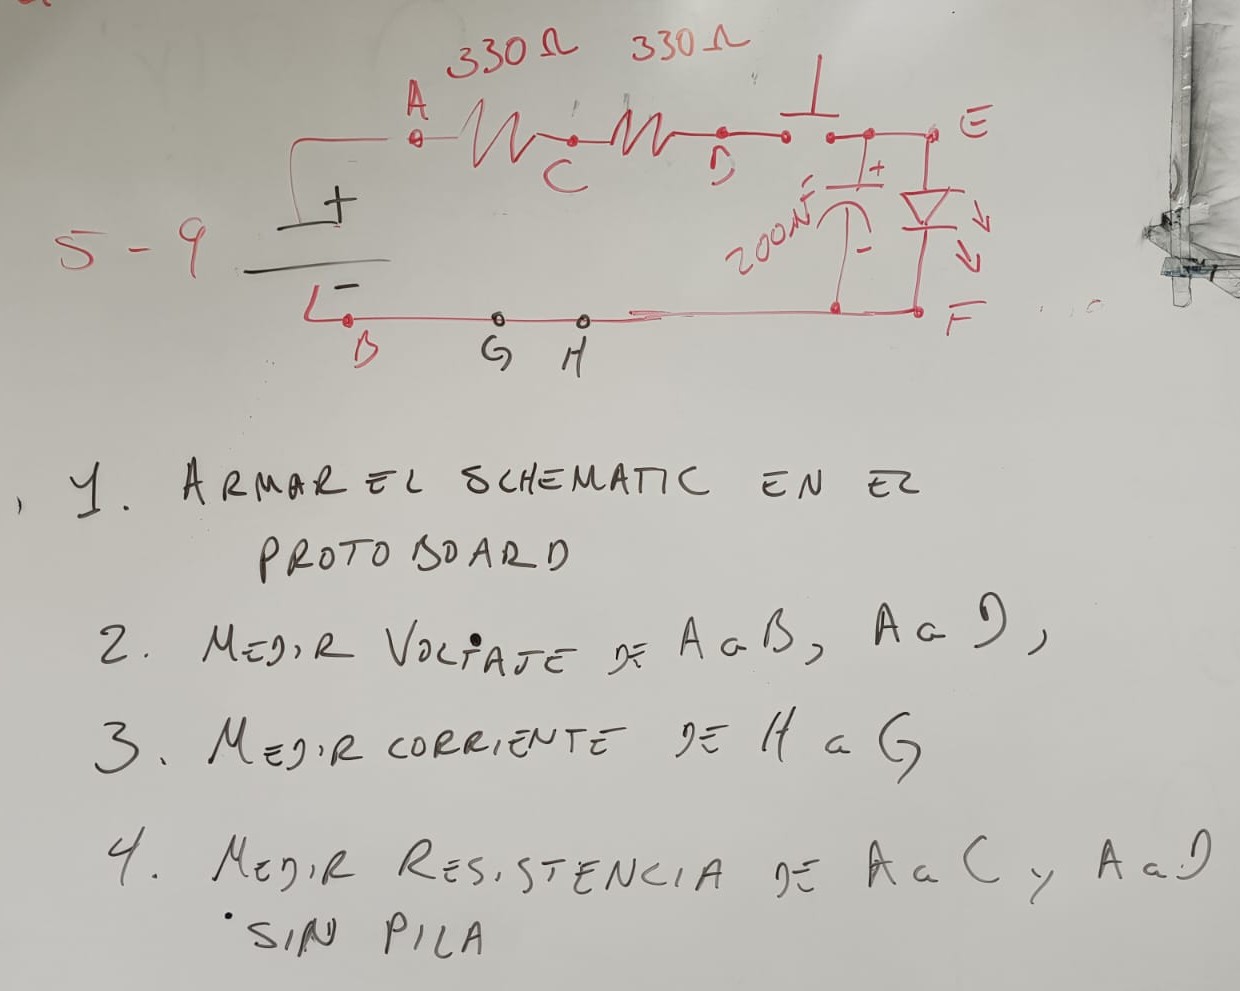 330 Ω 330 Ω
A
C
D
E
+
+
5 - 9
-
-
B
G
H
F
1. ARMAR EL SCHEMATIC EN EL
PROTOBOARD
2. MEDIR VOLTAJE DE A a B, A a D,
3. MEDIR CORRIENTE DE H a G
4. MEDIR RESISTENCIA DE A a C y A a D
SIN PILA